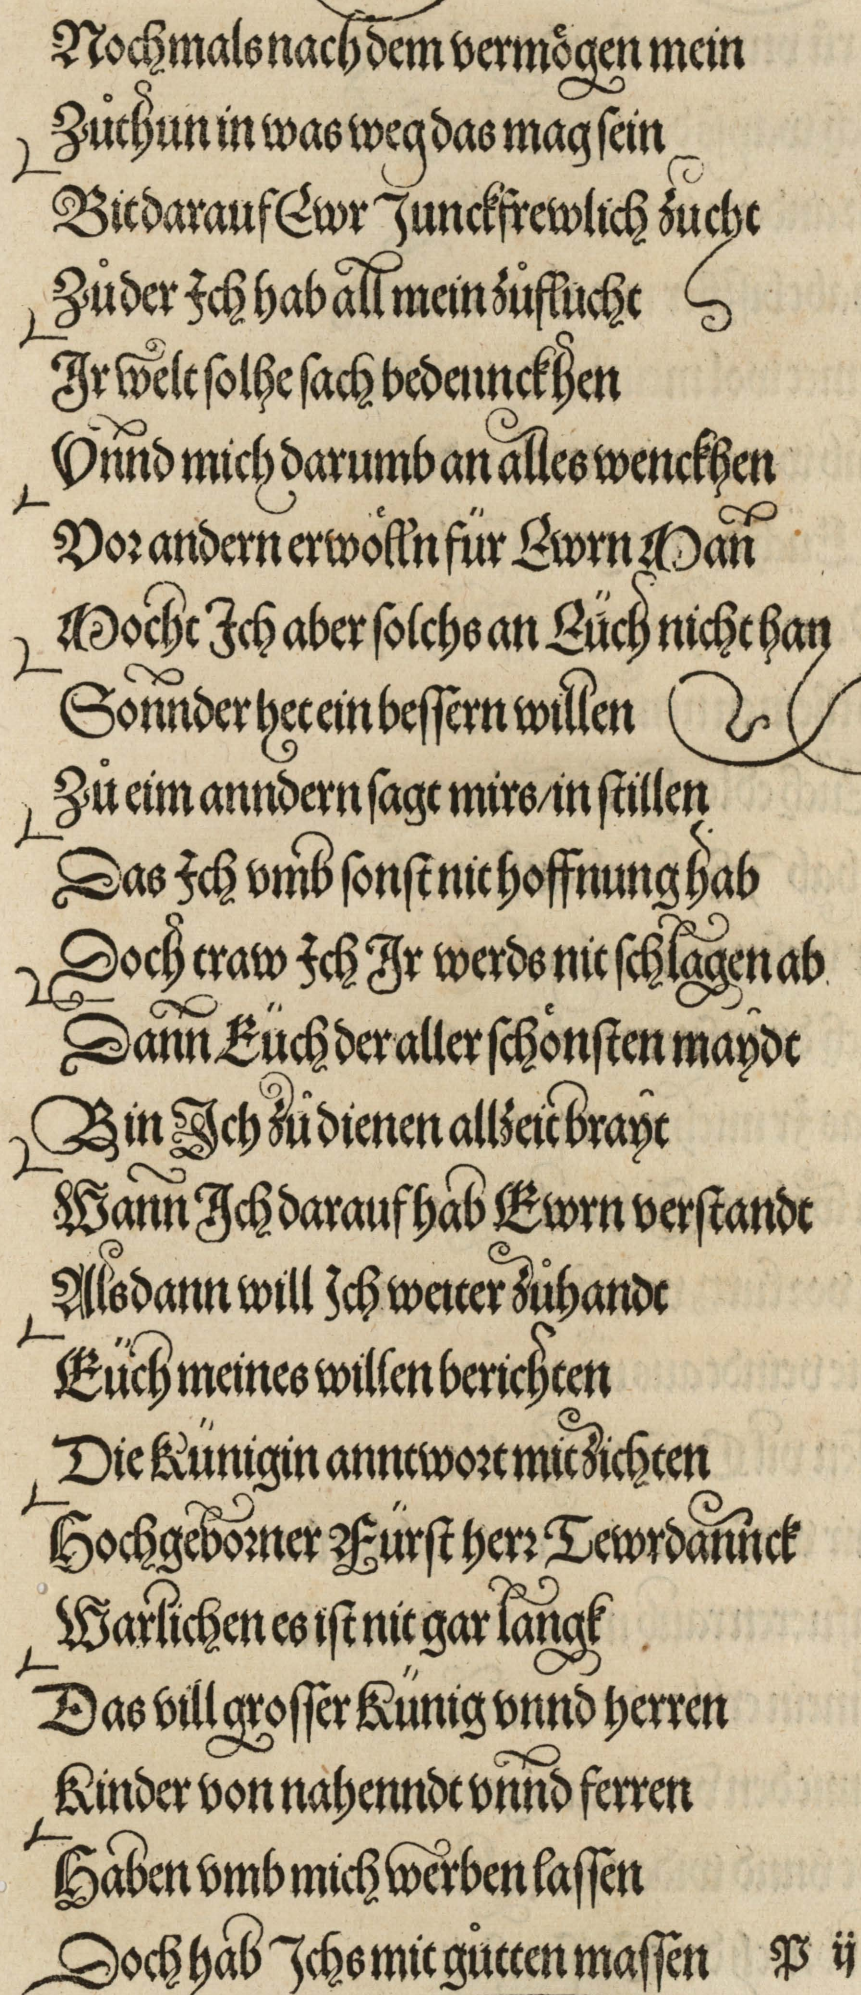 Nochmals nach dem vermögen mein
Zůthun in was weg das mag sein
Bit darauf Ewr Junckfrewlich zucht
Zů der Ich hab all mein zůflucht
Ir welt solhe sach bedennckhen
Vnnd mich darumb an alles wenckhen
Vor andern erwölln für Ewrn Man̄
Mocht Ich aber solchs an Eüch nicht han
Sonnder het ein bessern willen
Zů eim anndern sagt mirs/in stillen
Das Ich vmb sonst nit hoffnung hab
Doch traw Ich Ir werds nit schlagen ab
Dann Eüch der aller schönsten maydt
Bin Ich zů dienen allzeit brayt
Wann Ich darauf hab Ewrn verstandt
Alsdann will Ich weiter zůhandt
Eüch meines willen berichten
Die Künigin anntwort mit zichten
Hochgeborner Fürst herr Tewrdannck
Warlichen es ist nit gar langk
Das vill grosser Künig vnnd herren
Kinder von nahenndt vnnd ferren
Haben vmb mich werben lassen
Doch hab Ichs mit gůtten massen P ij